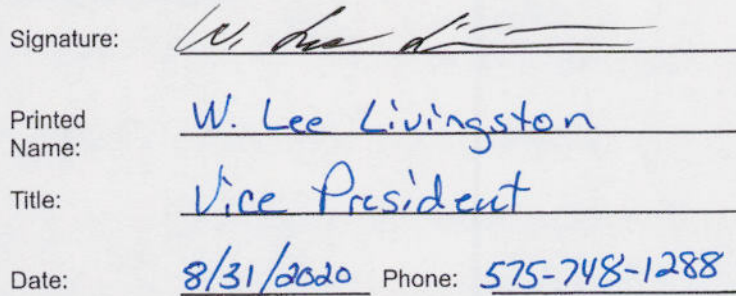 Signature: W. Lee Li
Printed W. Lee Livingston
Name:
Title: Vice President
Date: 8/31/2020 Phone: 575-748-1288